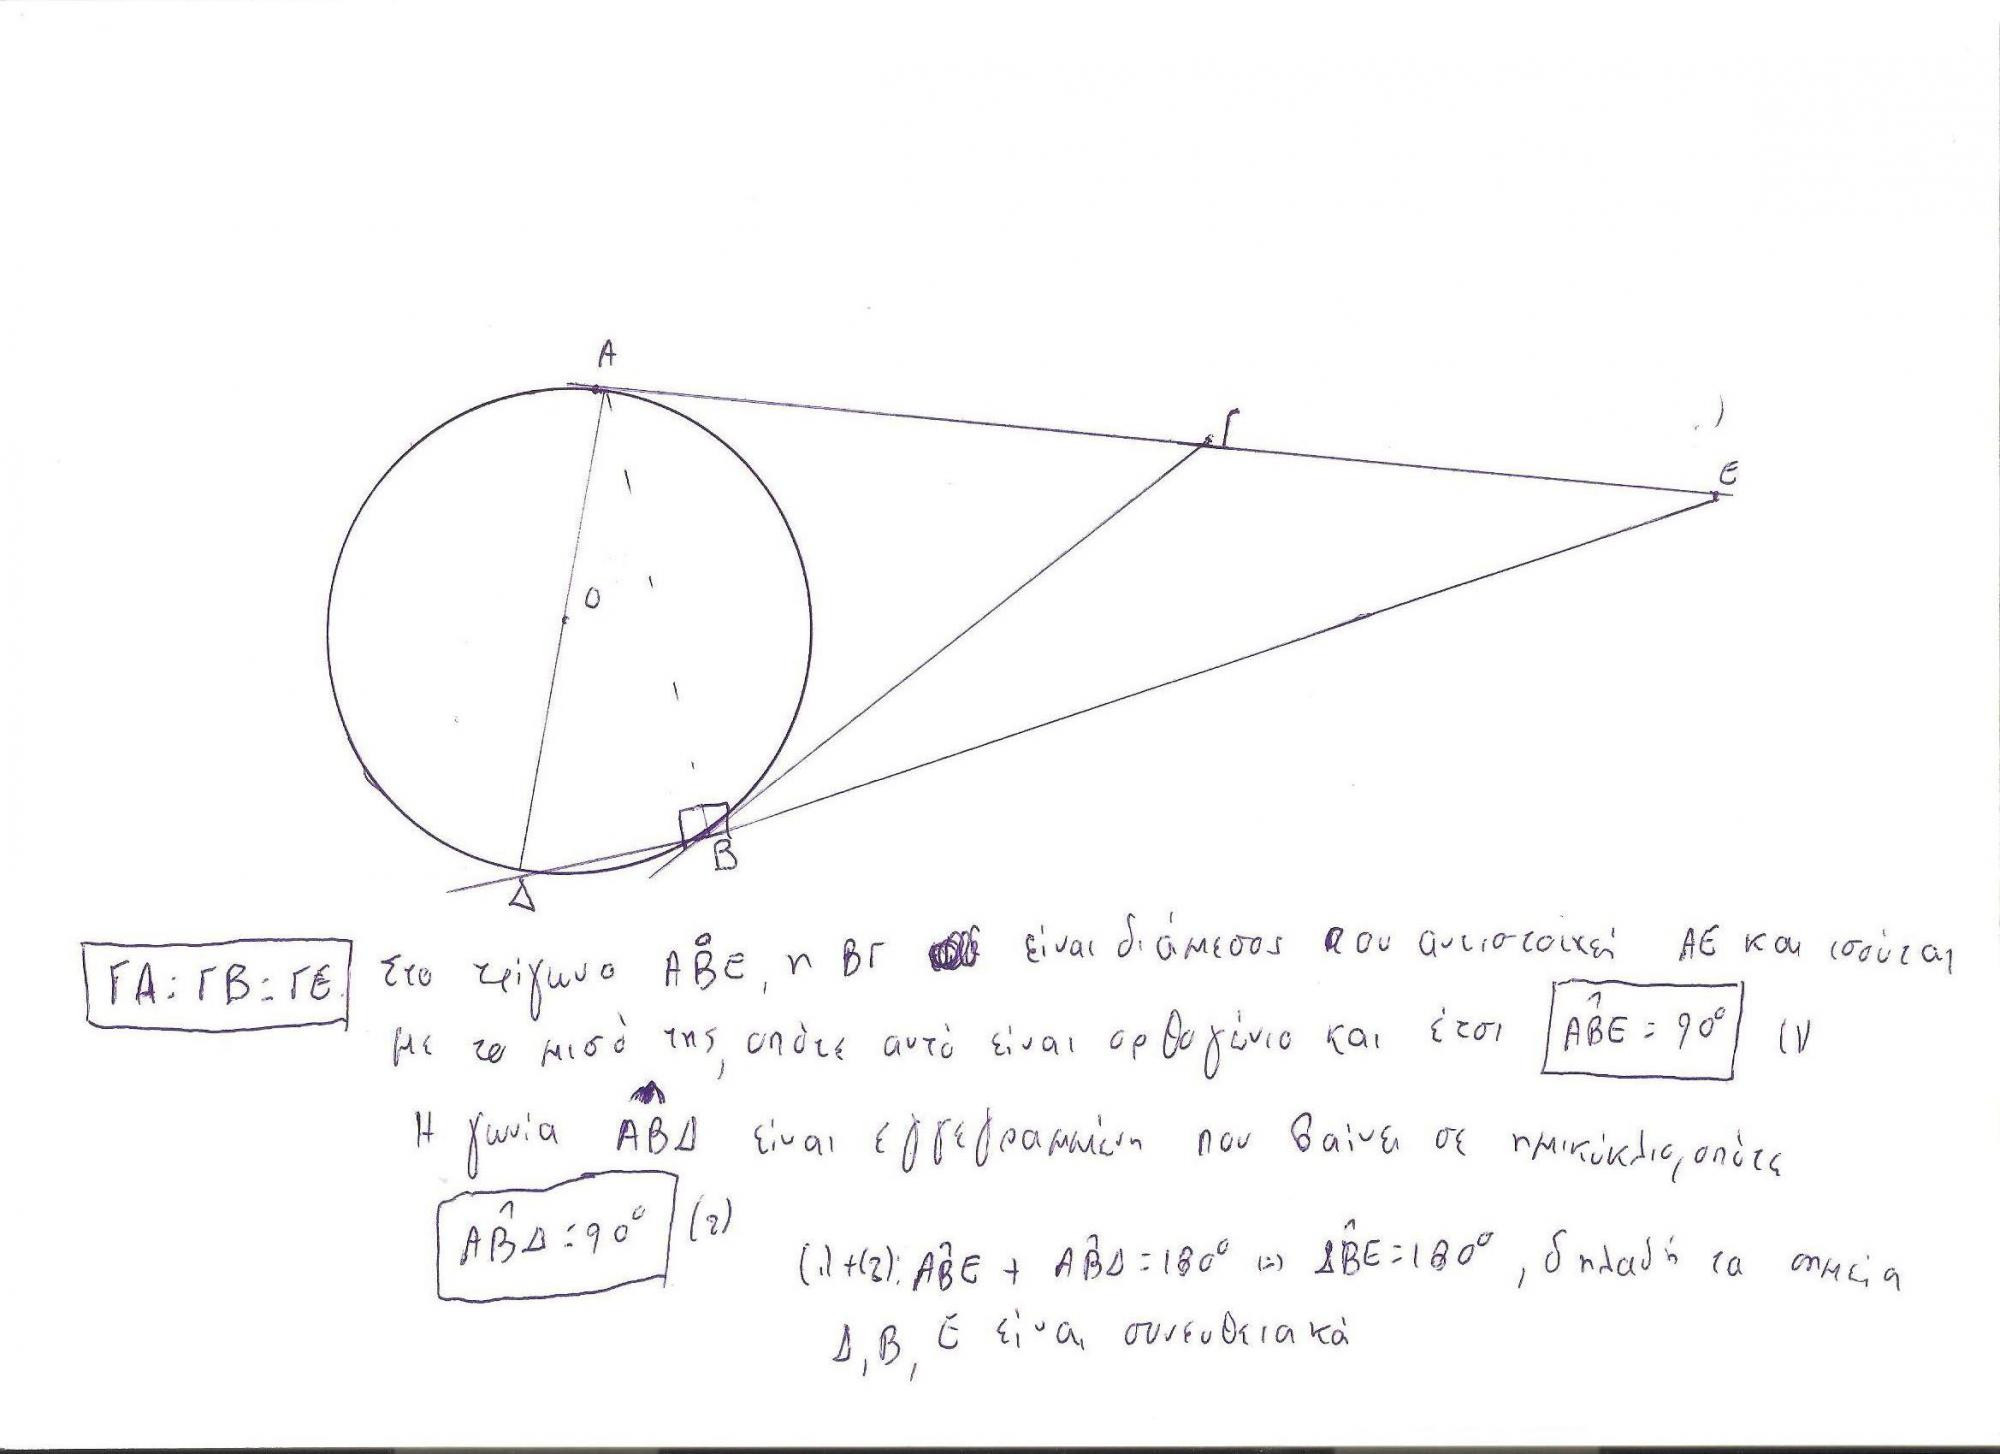 A
Γ
E
O
B
Δ
ΓΑ = ΓΒ = ΓΕ Στο τρίγωνο ΑΒΕ, η ΒΓ είναι διάμεσος που αντιστοιχεί ΑΕ και ισούται
με το μισό της, οπότε αυτό είναι ορθογώνιο και έτσι ΑΒ̂Ε = 90° (1)
Η γωνία ΑΒ̂Δ είναι εγγεγραμμένη που βαίνει σε ημικύκλιο, οπότε
ΑΒ̂Δ = 90° (2)
(1)+(2): ΑΒ̂Ε + ΑΒ̂Δ = 180° ⇔ ΔΒ̂Ε = 180°, δηλαδή τα σημεία
Δ, Β, Ε είναι συνευθειακά